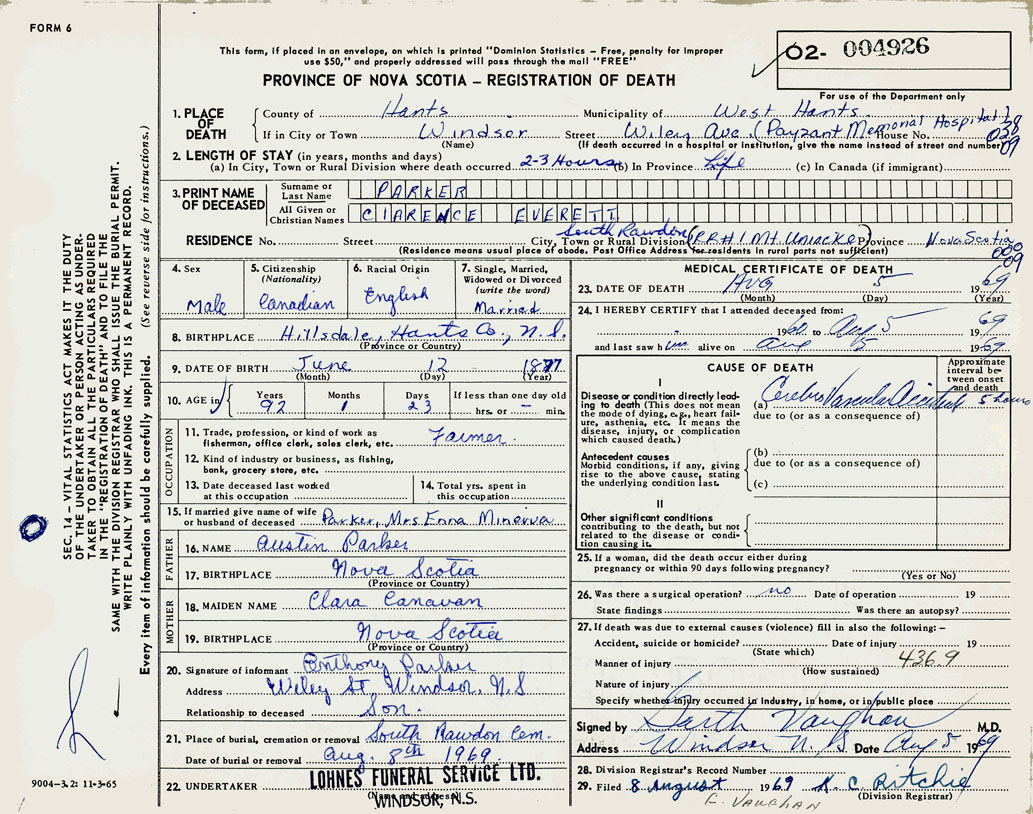 FORM 6
This form, if placed in an envelope, on which is printed "Dominion Statistics – Free, penalty for improper
use $50," and properly addressed will pass through the mail "FREE"
O2- 004926
For use of the Department only
PROVINCE OF NOVA SCOTIA – REGISTRATION OF DEATH
1. PLACE OF DEATH
County of Hants Municipality of West Hants
If in City or Town Windsor Street Wiley Ave (Payzant Memorial Hospital) House No.
(Name) (If death occurred in a hospital or institution, give the name instead of street and number)
028
09
2. LENGTH OF STAY (in years, months and days)
(a) In City, Town or Rural Division where death occurred 2-3 Hours (b) In Province Life (c) In Canada (if immigrant)
3. PRINT NAME OF DECEASED
Surname or Last Name PARKER
All Given or Christian Names CLARENCE EVERETT
RESIDENCE No. Street City, Town or Rural Division South Rawdon (RR#1 Mt Uniacke) Province Nova Scotia
(Residence means usual place of abode. Post Office Address for residents in rural parts not sufficient)
000
09
4. Sex Male
5. Citizenship (Nationality) Canadian
6. Racial Origin English
7. Single, Married, Widowed or Divorced (write the word) Married
8. BIRTHPLACE Hillsdale, Hants Co., N.S.
(Province or Country)
9. DATE OF BIRTH June 12 1877
(Month) (Day) (Year)
10. AGE in Years 92 Months 1 Days 23 If less than one day old
hrs. or – min.
OCCUPATION
11. Trade, profession, or kind of work as
fisherman, office clerk, sales clerk, etc. Farmer
12. Kind of industry or business, as fishing,
bank, grocery store, etc.
13. Date deceased last worked
at this occupation
14. Total yrs. spent in
this occupation
15. If married give name of wife
or husband of deceased Parker, Mrs Enna Minerva
FATHER
16. NAME Austin Parker
17. BIRTHPLACE Nova Scotia
(Province or Country)
MOTHER
18. MAIDEN NAME Clara Canavan
19. BIRTHPLACE Nova Scotia
(Province or Country)
20. Signature of informant Anthony Parker
Address Wiley St, Windsor, N.S
Relationship to deceased Son.
21. Place of burial, cremation or removal South Rawdon Cem.
Date of burial or removal Aug. 8th 1969
22. UNDERTAKER LOHNES FUNERAL SERVICE LTD.
WINDSOR, N.S.
MEDICAL CERTIFICATE OF DEATH
23. DATE OF DEATH AUG 5 1969
(Month) (Day) (Year)
24. I HEREBY CERTIFY that I attended deceased from:
1960 to Aug 5 1969
and last saw him alive on Aug 5 1969
CAUSE OF DEATH
Approximate interval between onset and death
I
Disease or condition directly leading to death (This does not mean the mode of dying, e.g., heart failure, asthenia, etc. It means the disease, injury, or complication which caused death.)
(a) Cerebro Vascular Accident 5 hours
due to (or as a consequence of)
Antecedent causes
Morbid conditions, if any, giving rise to the above cause, stating the underlying condition last.
(b)
due to (or as a consequence of)
(c)
II
Other significant conditions
contributing to the death, but not related to the disease or condition causing it.
25. If a woman, did the death occur either during
pregnancy or within 90 days following pregnancy?
(Yes or No)
26. Was there a surgical operation? no Date of operation 19
State findings Was there an autopsy?
27. If death was due to external causes (violence) fill in also the following: –
Accident, suicide or homicide? Date of injury 19
(State which)
Manner of injury 436.9
(How sustained)
Nature of injury
Specify whether injury occurred in industry, in home, or in public place
Signed by Garth Vaughan M.D.
Address Windsor N.S. Date Aug 5 1969
28. Division Registrar's Record Number
29. Filed 8 August 1969 K. C. Ritchie
(Division Registrar)
VAUGHAN
SEC. 14 – VITAL STATISTICS ACT MAKES IT THE DUTY
OF THE UNDERTAKER OR PERSON ACTING AS UNDER-
TAKER TO OBTAIN ALL THE PARTICULARS REQUIRED
IN THE "REGISTRATION OF DEATH" AND TO FILE THE
SAME WITH THE DIVISION REGISTRAR WHO SHALL ISSUE THE BURIAL PERMIT.
WRITE PLAINLY WITH UNFADING INK. THIS IS A PERMANENT RECORD.
Every item of information should be carefully supplied. (See reverse side for instructions.)
9004-3.2: 11-3-65